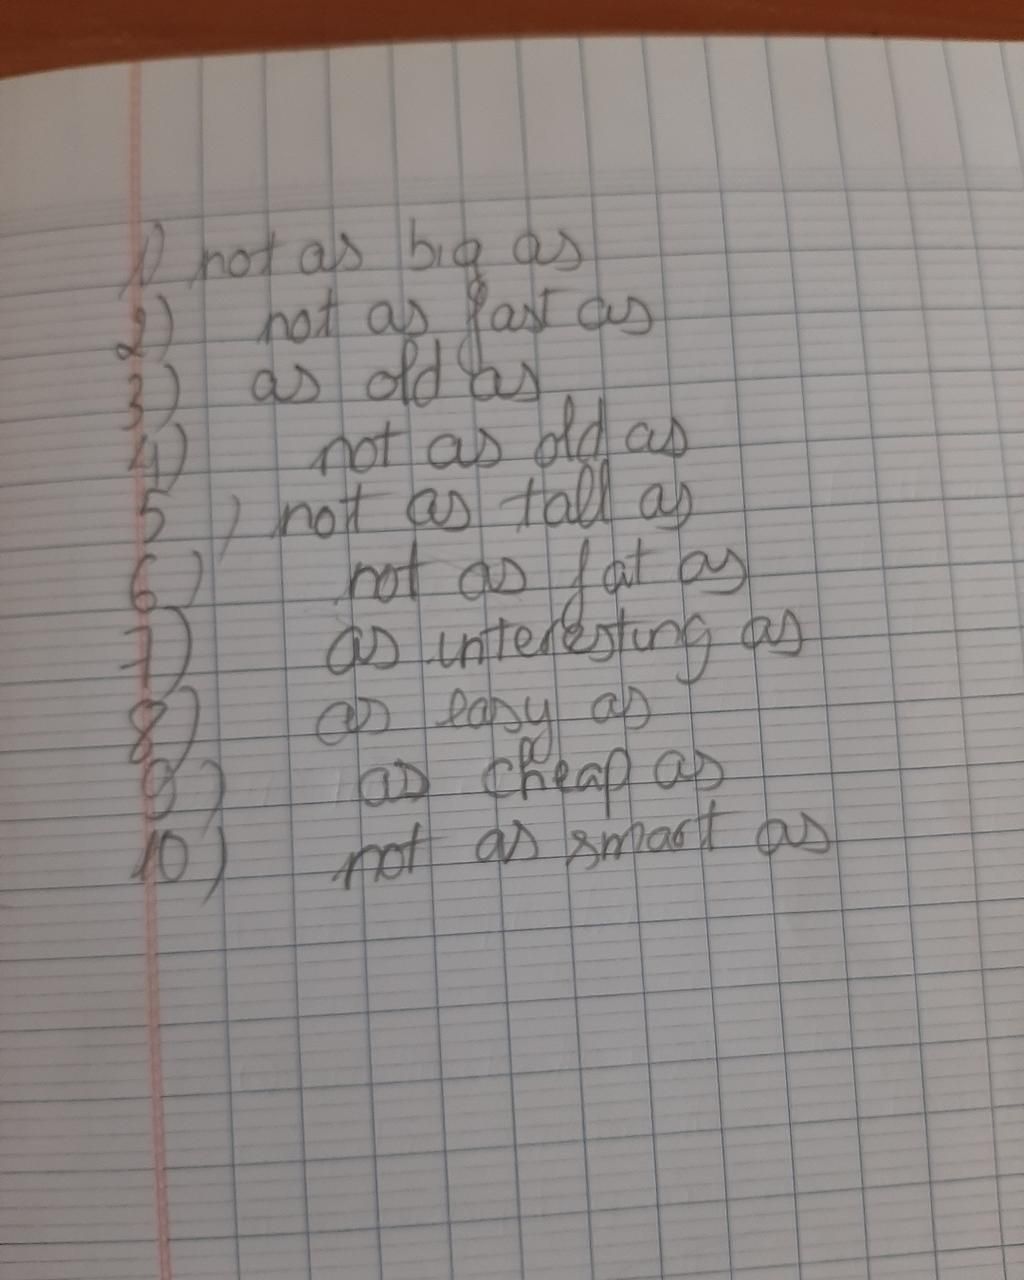 1) not as big as
2) not as fast as
3) as old as
4) not as old as
5) not as tall as
6) not as fat as
7) as interesting as
8) as easy as
9) as cheap as
10) not as smart as